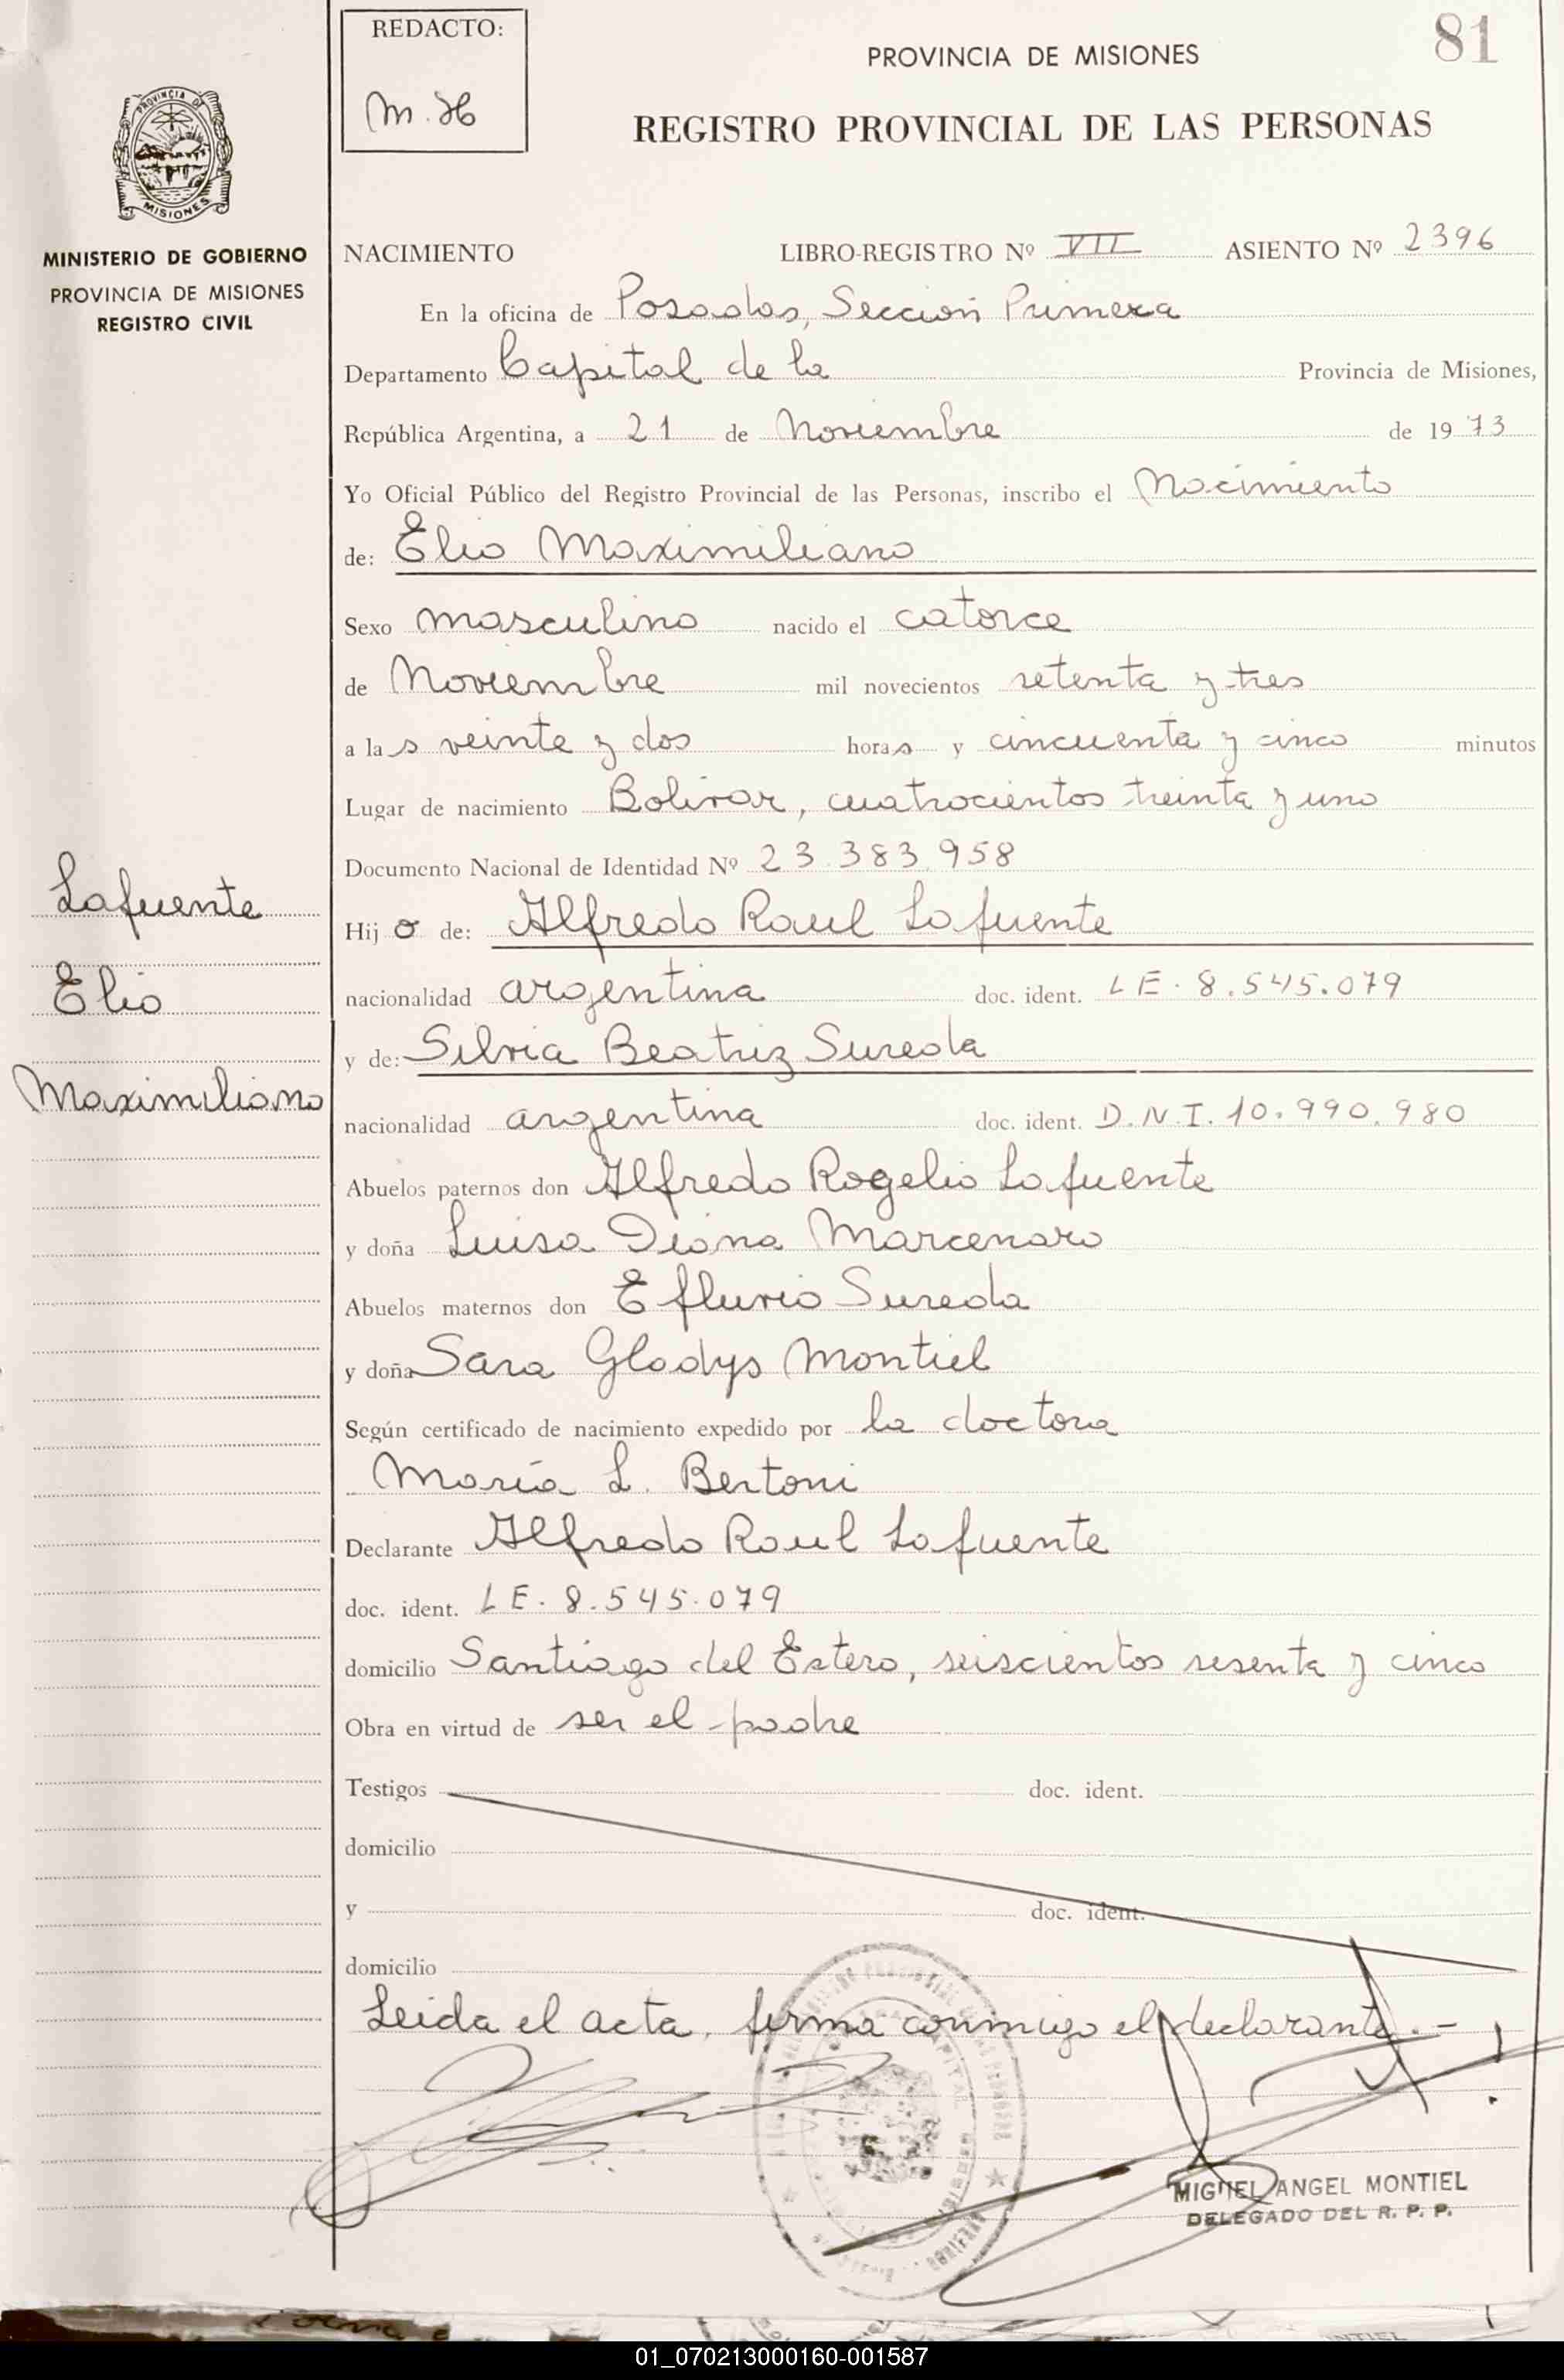 REDACTO:
M. H
PROVINCIA DE MISIONES
81
REGISTRO PROVINCIAL DE LAS PERSONAS
PROVINCIA DE
MISIONES
MINISTERIO DE GOBIERNO
PROVINCIA DE MISIONES
REGISTRO CIVIL
NACIMIENTO LIBRO-REGISTRO Nº VII ASIENTO Nº 2396
En la oficina de Posadas, Sección Primera
Departamento Capital de la Provincia de Misiones,
República Argentina, a 21 de Noviembre de 19 73
Yo Oficial Público del Registro Provincial de las Personas, inscribo el Nacimiento
de: Elio Maximiliano
Sexo masculino nacido el catorce
de Noviembre mil novecientos setenta y tres
a la s veinte y dos hora s y cincuenta y cinco minutos
Lugar de nacimiento Bolivar, cuatrocientos treinta y uno
Documento Nacional de Identidad Nº 23.383.958
Lafuente
Elio
Maximiliano
Hij o de: Alfredo Raul Lafuente
nacionalidad argentina doc. ident. LE. 8.545.079
y de: Silvia Beatriz Sureda
nacionalidad argentina doc. ident. D.N.I. 10.990.980
Abuelos paternos don Alfredo Rogelio Lafuente
y doña Luisa Diana Marcenaro
Abuelos maternos don Efluvio Sureda
y doña Sara Gladys Montiel
Según certificado de nacimiento expedido por la doctora
María L. Bertoni
Declarante Alfredo Raul Lafuente
doc. ident. LE. 8.545.079
domicilio Santiago del Estero, seiscientos sesenta y cinco
Obra en virtud de ser el padre
Testigos doc. ident.
domicilio
y doc. ident.
domicilio
Leida el acta, firma conmigo el declarante.-
MIGUEL ANGEL MONTIEL
DELEGADO DEL R. P. P.
01_070213000160-001587